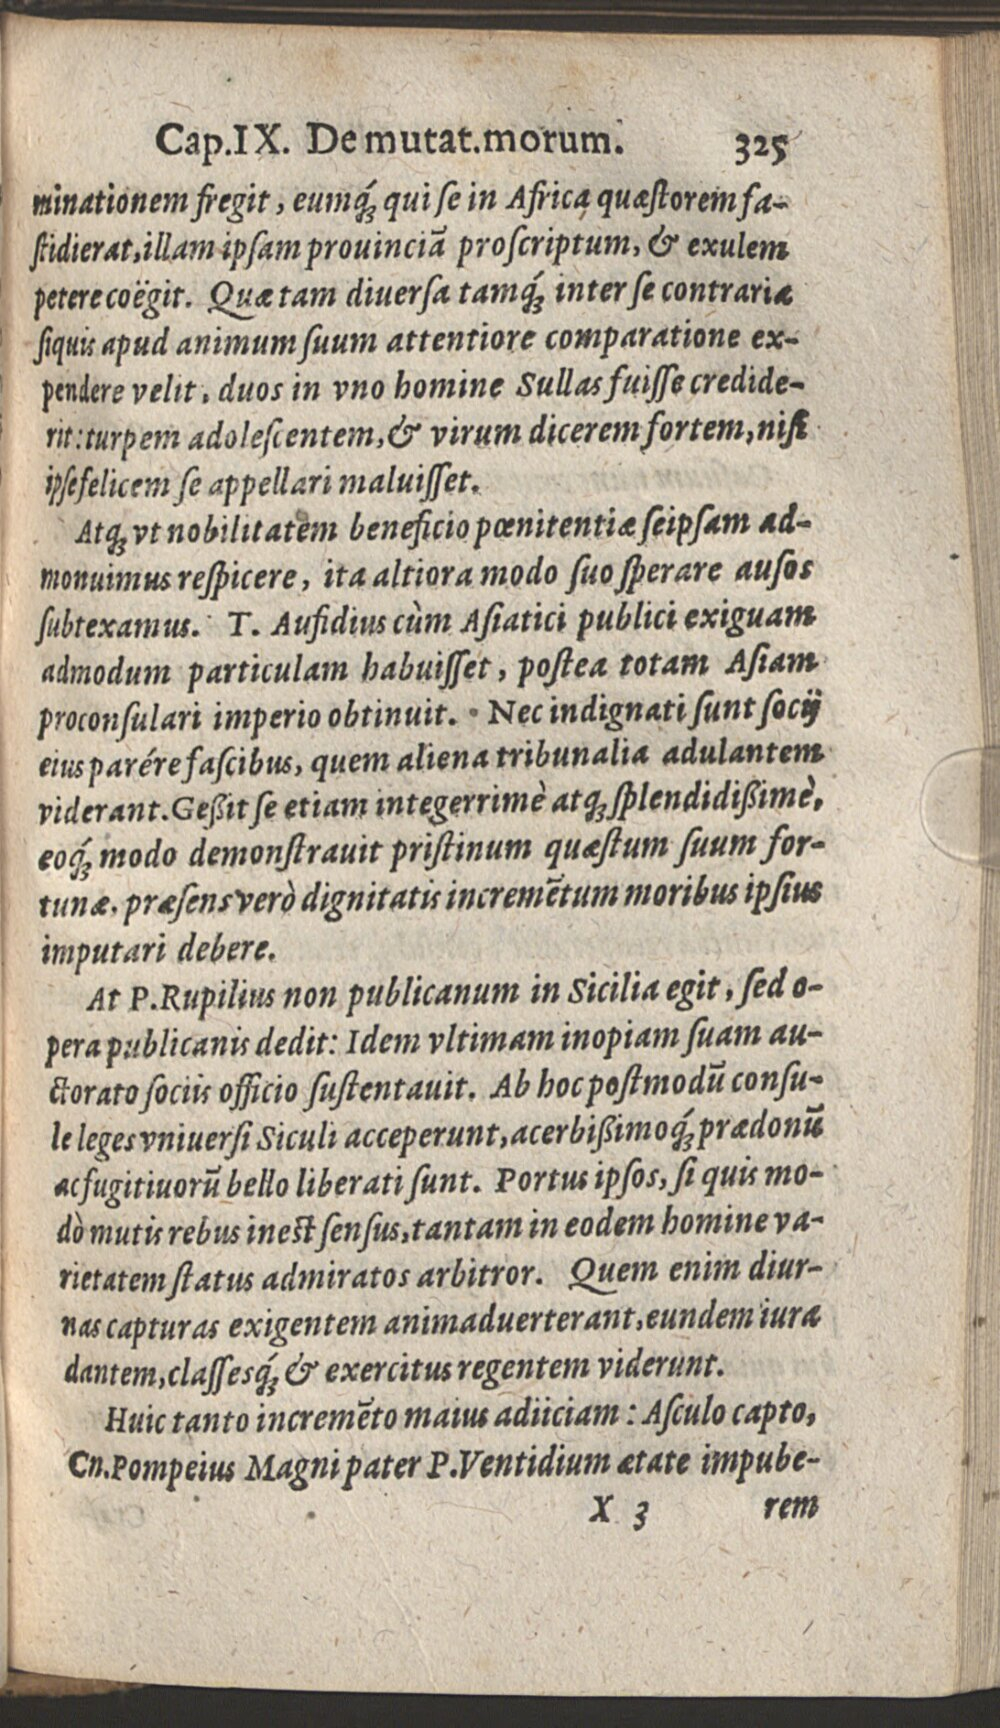 Cap.IX. De mutat. morum. 325
minationem fregit, eumq́; qui se in Africa quæstorem fa-
stidierat, illam ipsam prouinciã proscriptum, & exulem
petere coëgit. Quæ tam diuersa tamq́; inter se contraria
siquis apud animum suum attentiore comparatione ex-
pendere velit, duos in vno homine Sullas fuisse credide-
rit: turpem adolescentem, & virum dicerem fortem, nisi
ipse felicem se appellari maluisset.
Atq; vt nobilitatem beneficio pœnitentiæ seipsam ad-
monuimus respicere, ita altiora modo suo sperare ausos
subtexamus. T. Aufidius cùm Asiatici publici exiguam
admodum particulam habuisset, postea totam Asiam
proconsulari imperio obtinuit. Nec indignati sunt socij
eius parére fascibus, quem aliena tribunalia adulantem
viderant. Geßit se etiam integerrimè atq; splendidißimè,
eoq́; modo demonstrauit pristinum quæstum suum for-
tunæ, præsens verò dignitatis incremẽtum moribus ipsius
imputari debere.
At P. Rupilius non publicanum in Sicilia egit, sed o-
pera publicanis dedit: Idem vltimam inopiam suam au-
ctorato sociis officio sustentauit. Ab hoc postmodũ consu-
le leges vniuersi Siculi acceperunt, acerbißimoq́; prædonũ
ac fugitiuorũ bello liberati sunt. Portus ipsos, si quis mo-
dò mutis rebus inest sensus, tantam in eodem homine va-
rietatem status admiratos arbitror. Quem enim diur-
nas capturas exigentem animaduerterant, eundem iura
dantem, classesq́; & exercitus regentem viderunt.
Huic tanto incremẽto maius adiiciam: Asculo capto,
Cn. Pompeius Magni pater P. Ventidium ætate impube-
X 3 rem